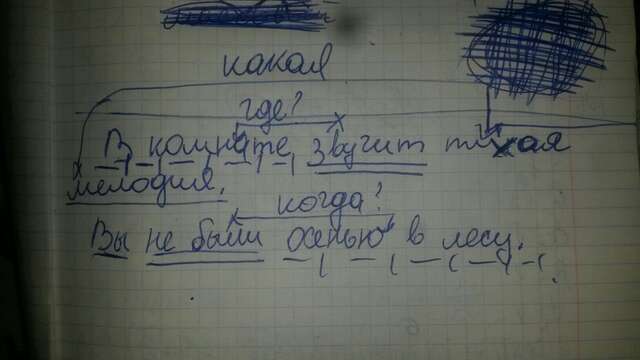 какая
где?
В комнате звучит тихая
мелодия.
когда?
Вы не были осенью в лесу.